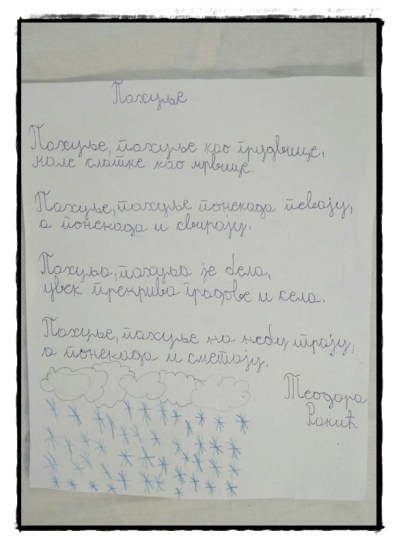 Пахуље
Пахуље, пахуље као грудвице,
мале клатке као мрвице.
Пахуље, пахуље понекада певају,
а понекада и свирају.
Пахуља, пахуља је бела,
увек прекрива градове и села.
Пахуље, пахуље на небу трају,
а понекада и сметају.
Теодора
Ракић